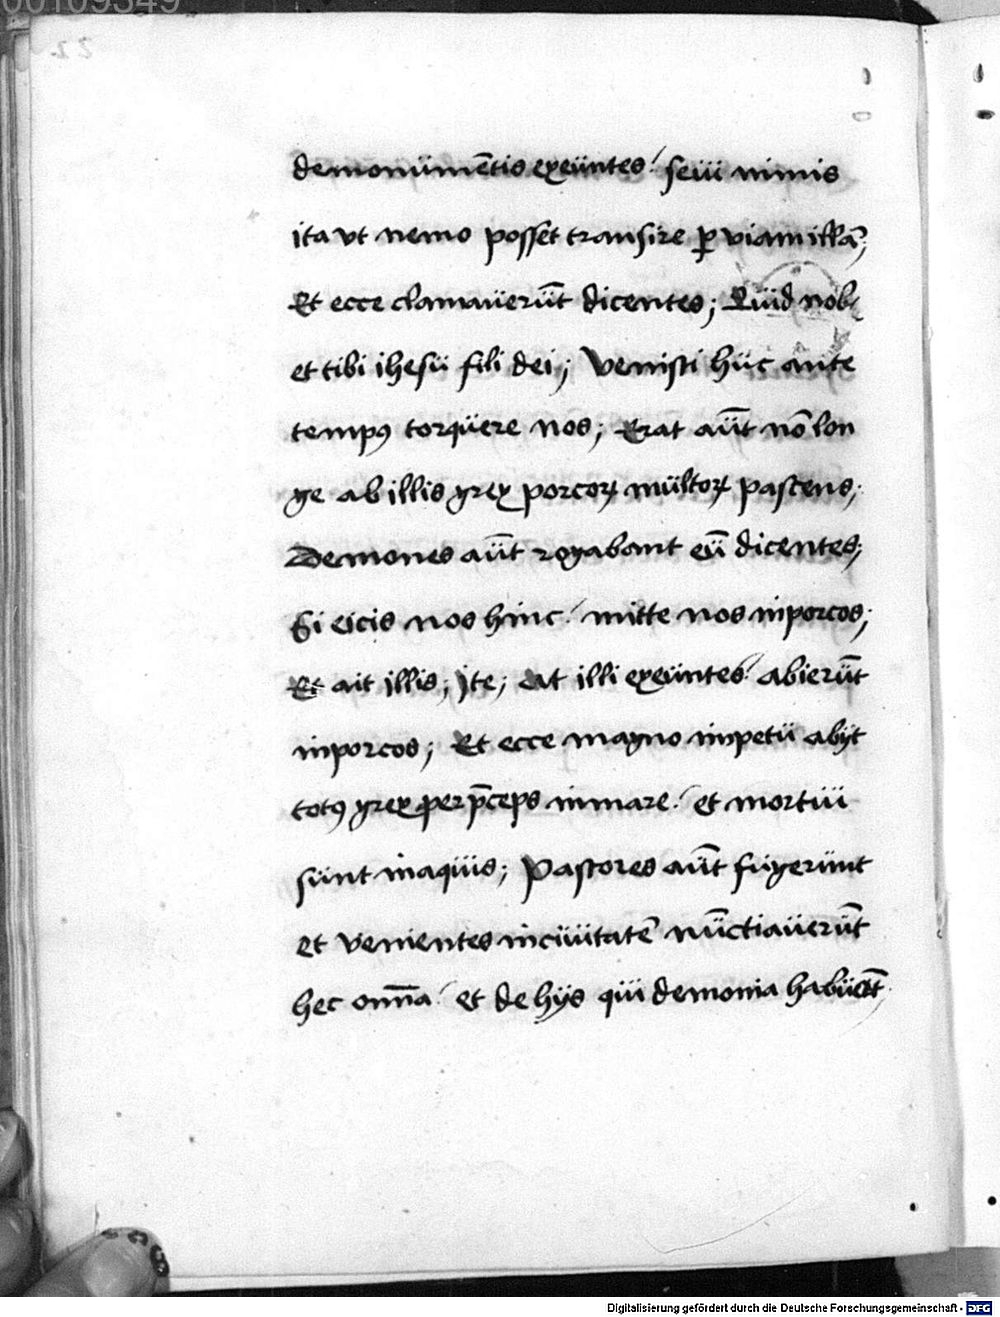 00109349
22
de monumētis exeuntes / seui nimis
ita vt nemo posset transire ꝑ viam illā;
Et ecce clamauerūt dicentes; Quid nob
et tibi ihesu fili dei; Venisti huc ante
tempꝰ torquere nos; Erat aūt nō lon
ge ab illis grex porcoꝝ multoꝝ pascens;
Demones aūt rogabant eū dicentes;
Si eicis nos hinc / mitte nos in porcos;
Et ait illis; Ite; At illi exeuntes / abierūt
in porcos; Et ecce magno impetu abijt
totꝰ grex per p̄ceps in mare / et mortui
sunt in aquis; Pastores aūt fugerunt
et venientes in ciuitatē nūctiauerūt
hec omīa / et de hijs qui demonia habuer̄t
Digitalisierung gefördert durch die Deutsche Forschungsgemeinschaft - DFG